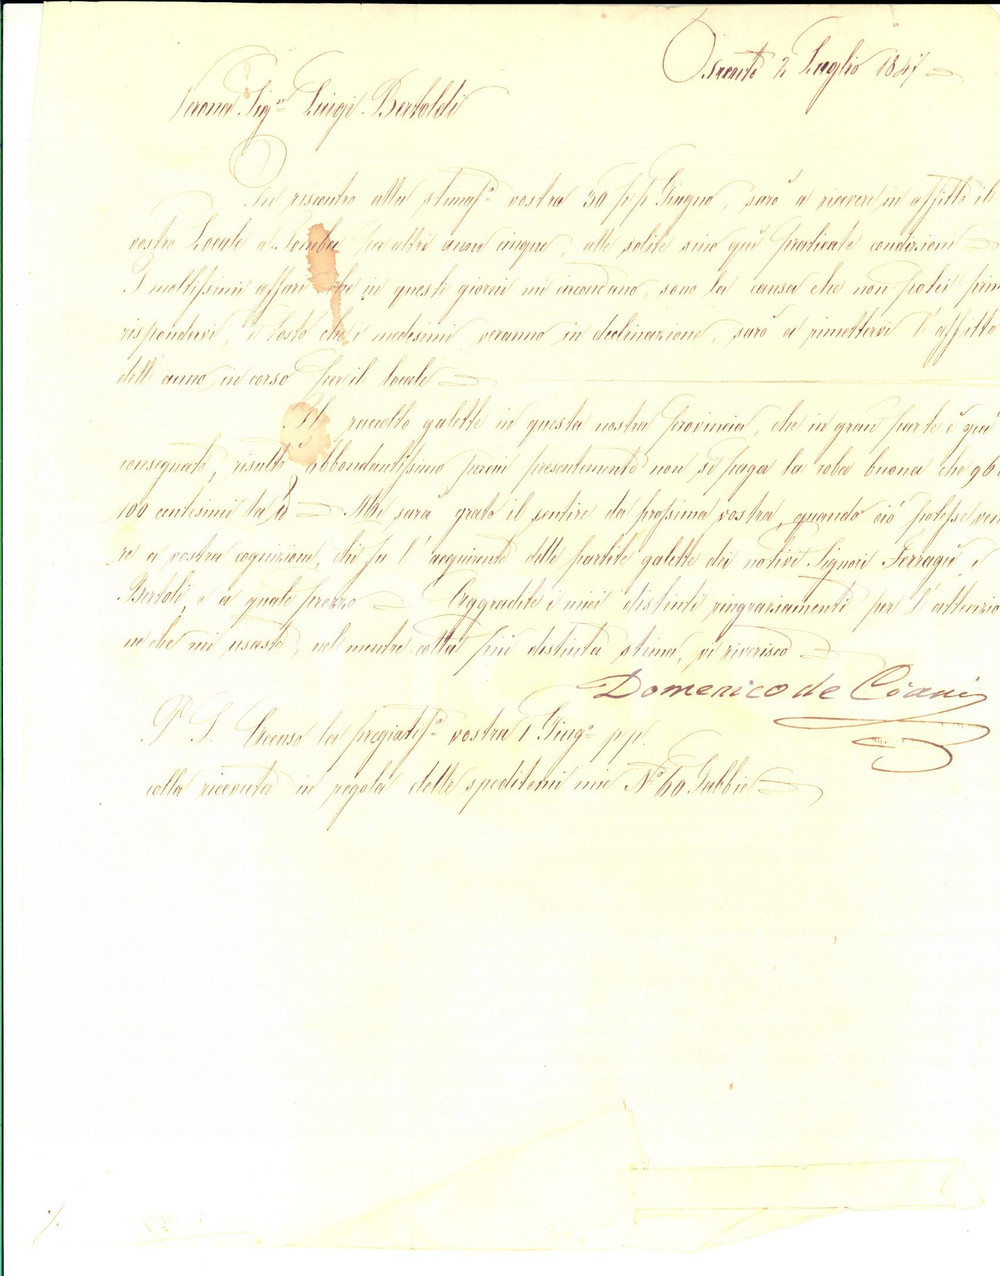 Trento 2 Luglio 1847
Verona Sigr. Luigi Bertoldi
In riscontro alla stimasſa. vostra 30 pp Giugno, sarò a ricevere in affitto il
vostro Locale al Tomba per altri anni cinque, alle solite sino quì praticate condizioni
I moltissimi affari che in questi giorni mi circondano, sono la causa che non potei prim
rispondervi, e tosto che i medesimi veranno in declinazione, sarò a rimettervi l'affitto
dell'anno in corso per il locale
Il raccolto galette in questa nostra Provincia, che in gran parte è quì
consegnato, risultò abbondantissimo perciò presentemente non si paga la roba buona che 96 a
100 centesimi la lb Mi sarà grato il sentire da prossima vostra, quando ciò potesse veni
re a vostra cognizione, chi fu l'acquirente delle partite galette dei notivi Signori Ferragù, e
Bertoli, e a quale prezzo Aggradite i miei distinti ringraziamenti per l'attenzio
ne che mi usaste, nel mentre colla più distinta stima, vi riverisco
Domenico de Ciani
P. S. Accuso la pregiatisſa. vostra 1 Giugo. pp.
colla ricevuta in regola delle speditemi mie No. 60 Gabbie